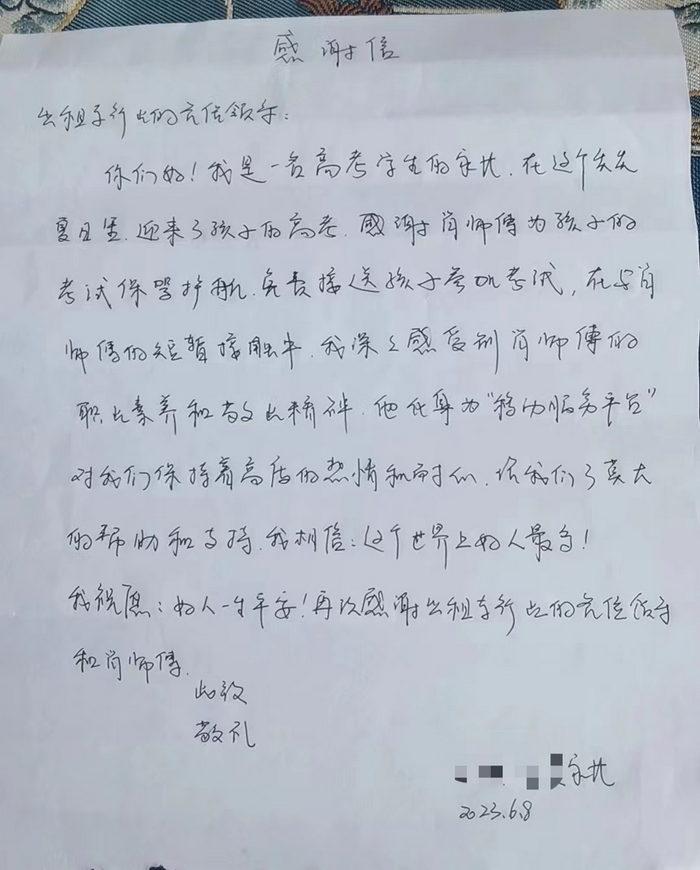 感谢信
出租车行业的各位领导:
你们好!我是一名高考学生的家长,在这个炎炎
夏日里,迎来了孩子的高考,感谢肖师傅为孩子的
考试保驾护航,免费接送孩子参加考试,在与肖
师傅的短暂接触中,我深深感受到肖师傅的
职业素养和敬业精神,他化身为“移动服务平台”
对我们保持着高度的热情和耐心,给我们了莫大
的帮助和支持,我相信:这个世界上好人最多!
我祝愿:好人一生平安!再次感谢出租车行业的各位领导
和肖师傅.
此致
敬礼
家长
2023.6.8